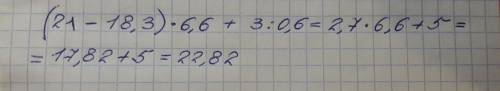 (21 - 18,3) · 6,6 + 3 : 0,6 = 2,7 · 6,6 + 5 =
= 17,82 + 5 = 22,82